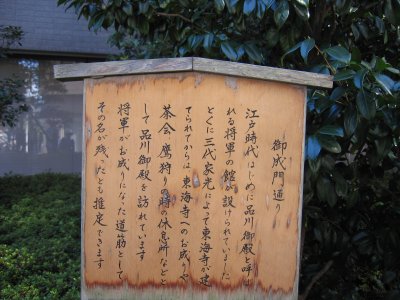 御成門通り
江戸時代はじめに品川御殿と呼ば
れる将軍の館が設けられていました
とくに三代家光によって東海寺が建
てられてからは東海寺へのお成りや
茶会 鷹狩りの時の休息所などと
して品川御殿を訪れています
将軍がお成りになった道筋として
その名が残ったとも推定できます